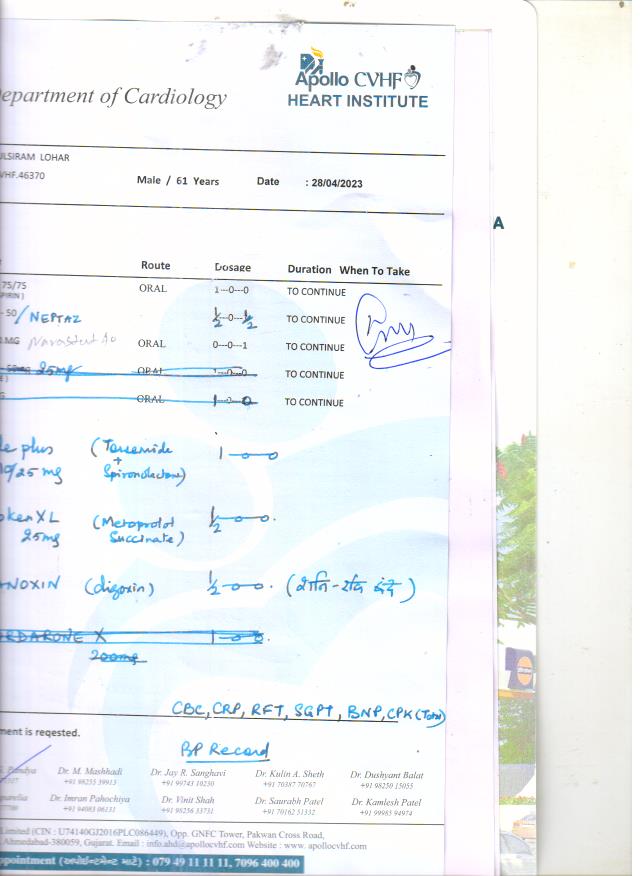 Apollo CVHF
HEART INSTITUTE
Department of Cardiology
ULSIRAM LOHAR
VHF.46370
Male / 61 Years Date : 28/04/2023
A
Route Dosage Duration When To Take
75/75 ORAL 1---0---0 TO CONTINUE
PIRIN )
- 50 / NEPTAZ ½--0--½ TO CONTINUE
MG ORAL 0---0---1 TO CONTINUE
25mg ORAL 1---0---0 TO CONTINUE
ORAL 1---0---0 TO CONTINUE
le plus (Torsemide + Spironolactone) 1—0—0
10/25 mg
okenXL (Metoprolol Succinate) ½—0—0.
25mg
NOXIN (digoxin) ½—0—0.
RDARONE X 1—0—0.
200mg
CBC, CRP, RFT, SGPT, BNP, CPK (Total)
ment is reqested.
BP Record
Pandya Dr. M. Mashhadi Dr. Jay R. Sanghavi Dr. Kulin A. Sheth Dr. Dushyant Balat
+91 98255 39913 +91 99743 10230 +91 70387 70767 +91 98250 15055
parelia Dr. Imran Pahochiya Dr. Vinit Shah Dr. Saurabh Patel Dr. Kamlesh Patel
+91 94083 06131 +91 98256 33731 +91 70162 51332 +91 99985 94974
Limited (CIN : U74140GJ2016PLC086449), Opp. GNFC Tower, Pakwan Cross Road,
Ahmedabad-380059, Gujarat. Email : info.ahd@apollocvhf.com Website : www. apollocvhf.com
ppointment (અપોઇન્ટમેન્ટ માટે) : 079 49 11 11 11, 7096 400 400